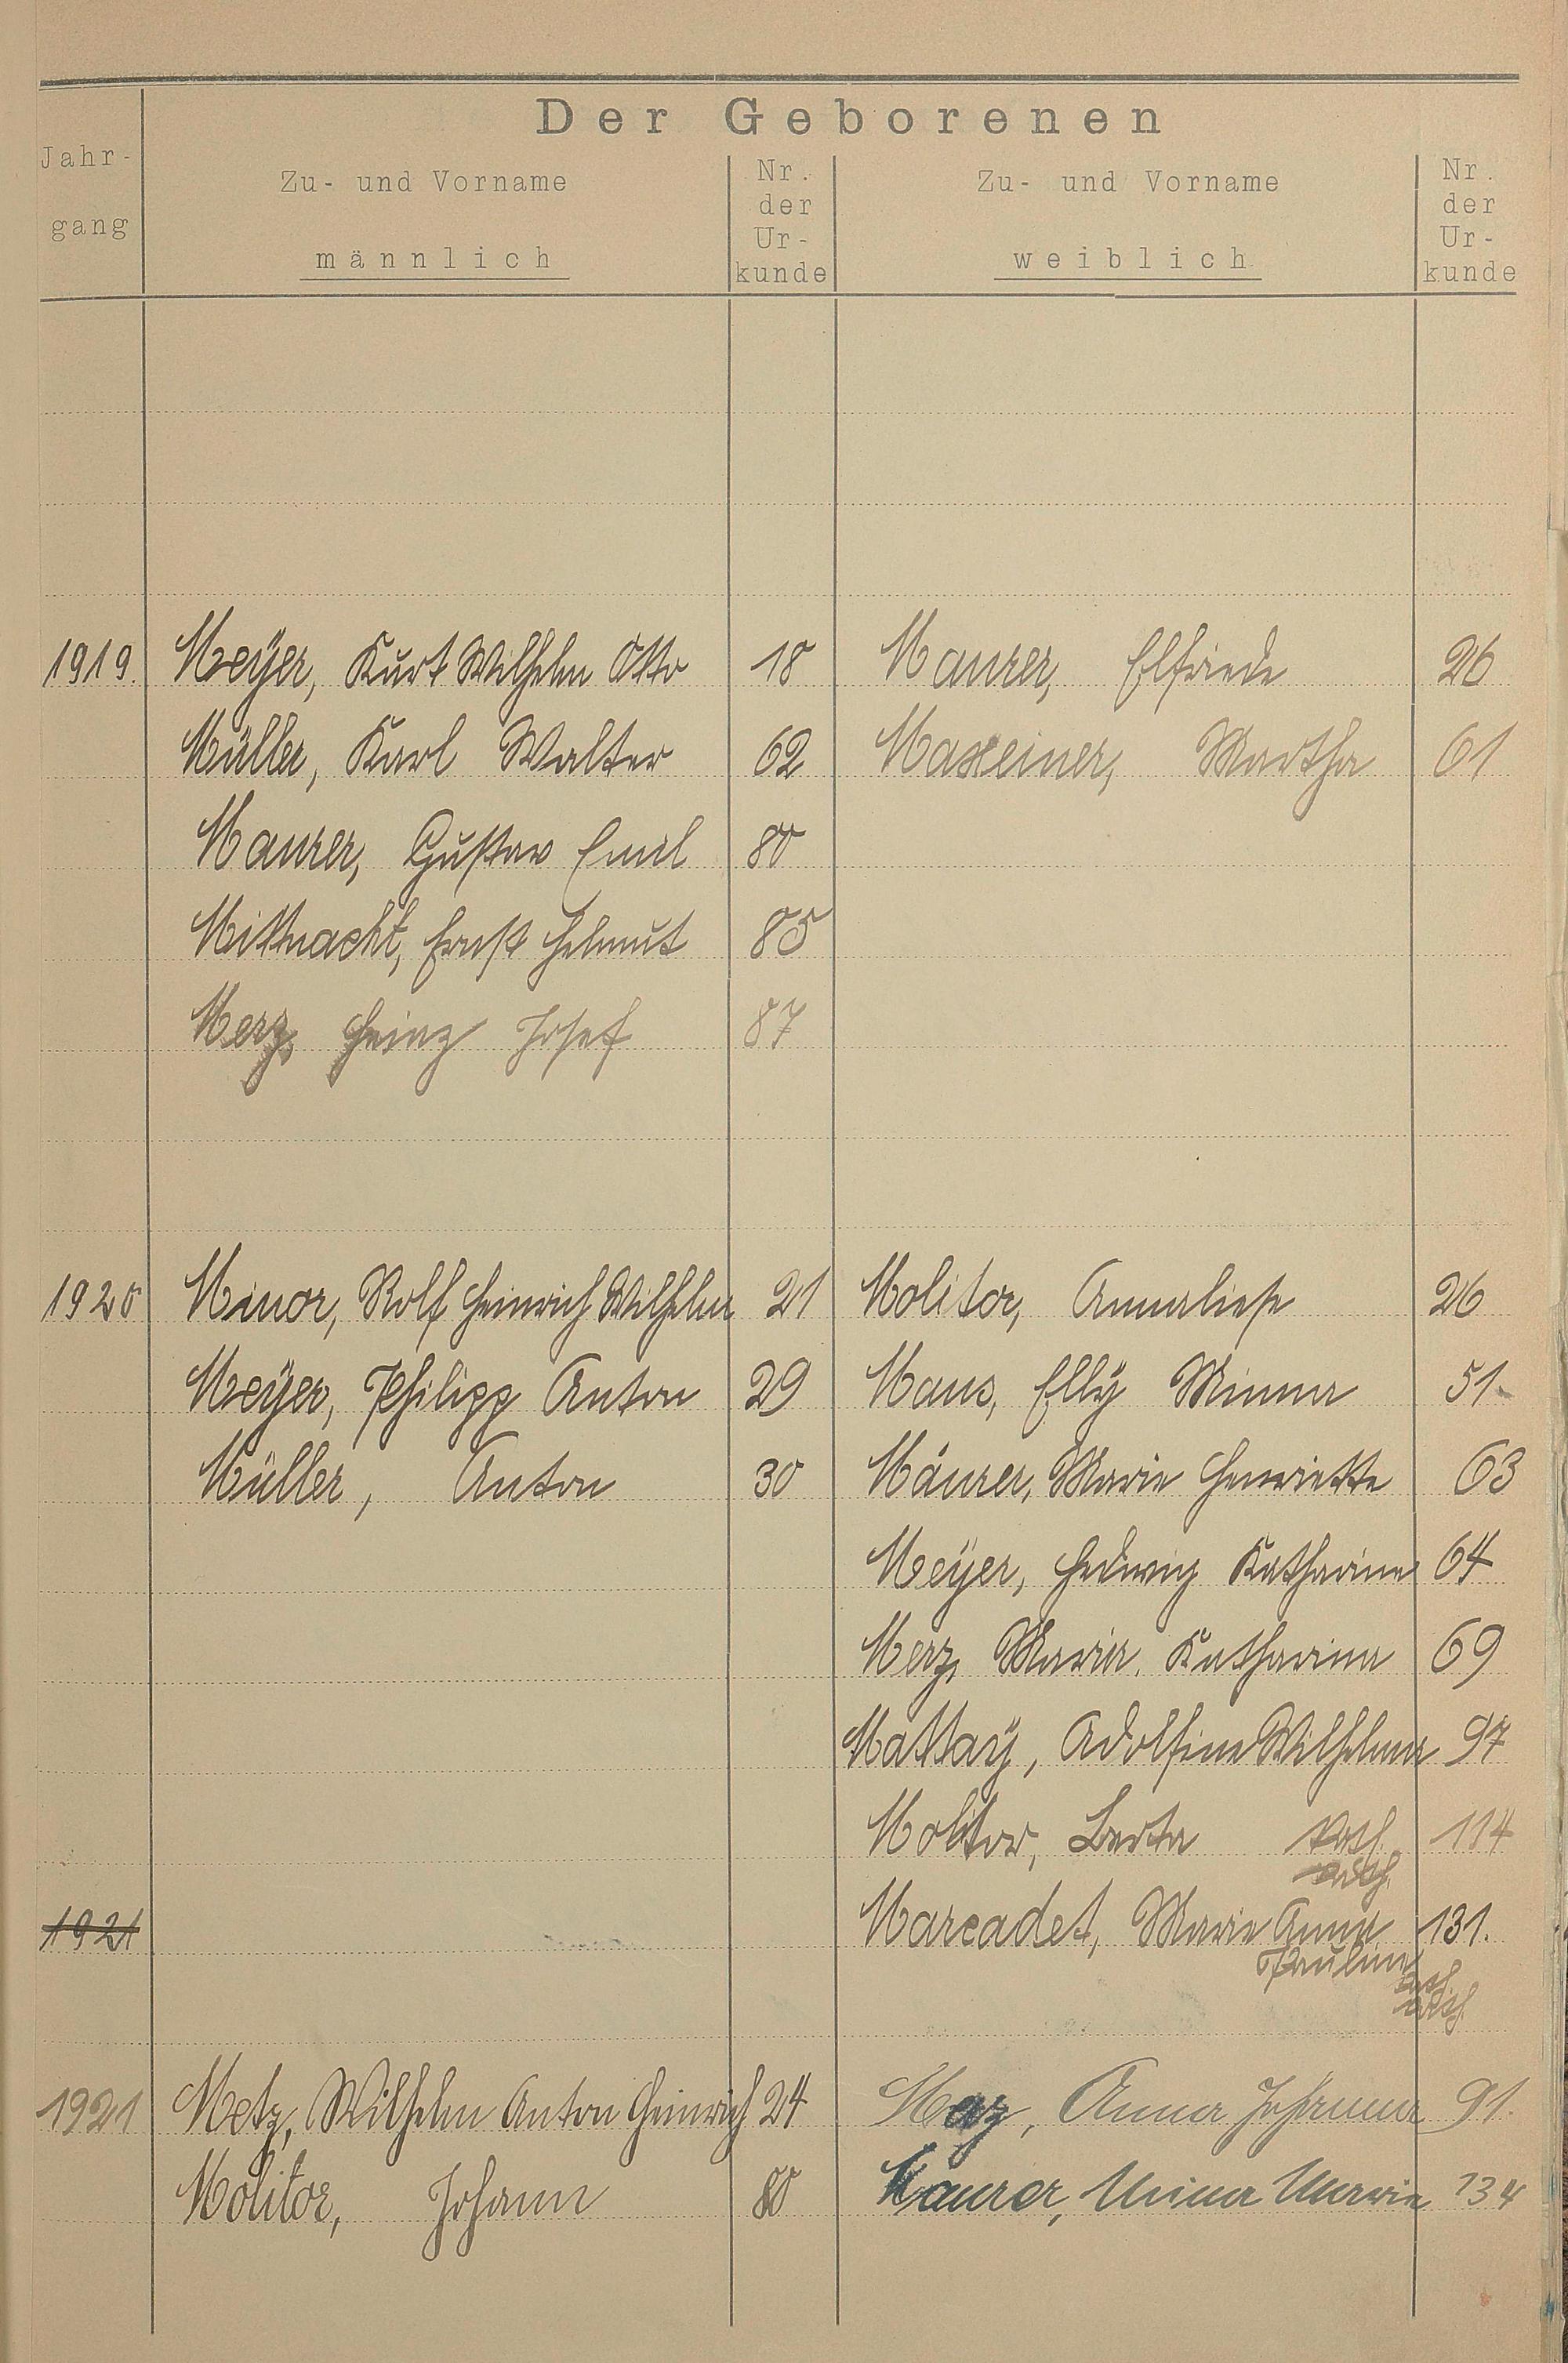 Der Geborenen
Jahrgang
Zu- und Vorname männlich
Nr. der Urkunde
Zu- und Vorname weiblich
Nr. der Urkunde
1919. Meÿer, Kurt Wilhelm Otto 18 Maurer, Elfriede 26
Müller, Karl Walter 62 Maxeiner, Martha 61
Maurer, Gustav Emil 80
Mittnacht, Ernst Helmut 85
Merz, Heinz Josef 87
1920 Minor, Rolf Heinrich Wilhelm 21 Molitor, Annaliese 26
Meÿer, Philipp Anton 29 Maus, Ellÿ Minna 51
Müller, Anton 30 Mäurer, Marie Henriette 63
Meÿer, Hedwig Katharina 64
Merz, Maria Katharina 69
Mattaÿ, Adolfine Wilhelma 97
Molitor, Berta 114
1921 Marcadet, Marie Anna 131.
Paulina
1921 Metz, Wilhelm Anton Heinrich 24 May, Anna Johanna 91.
Molitor, Johann 80 Maurer, Minna Maria 134